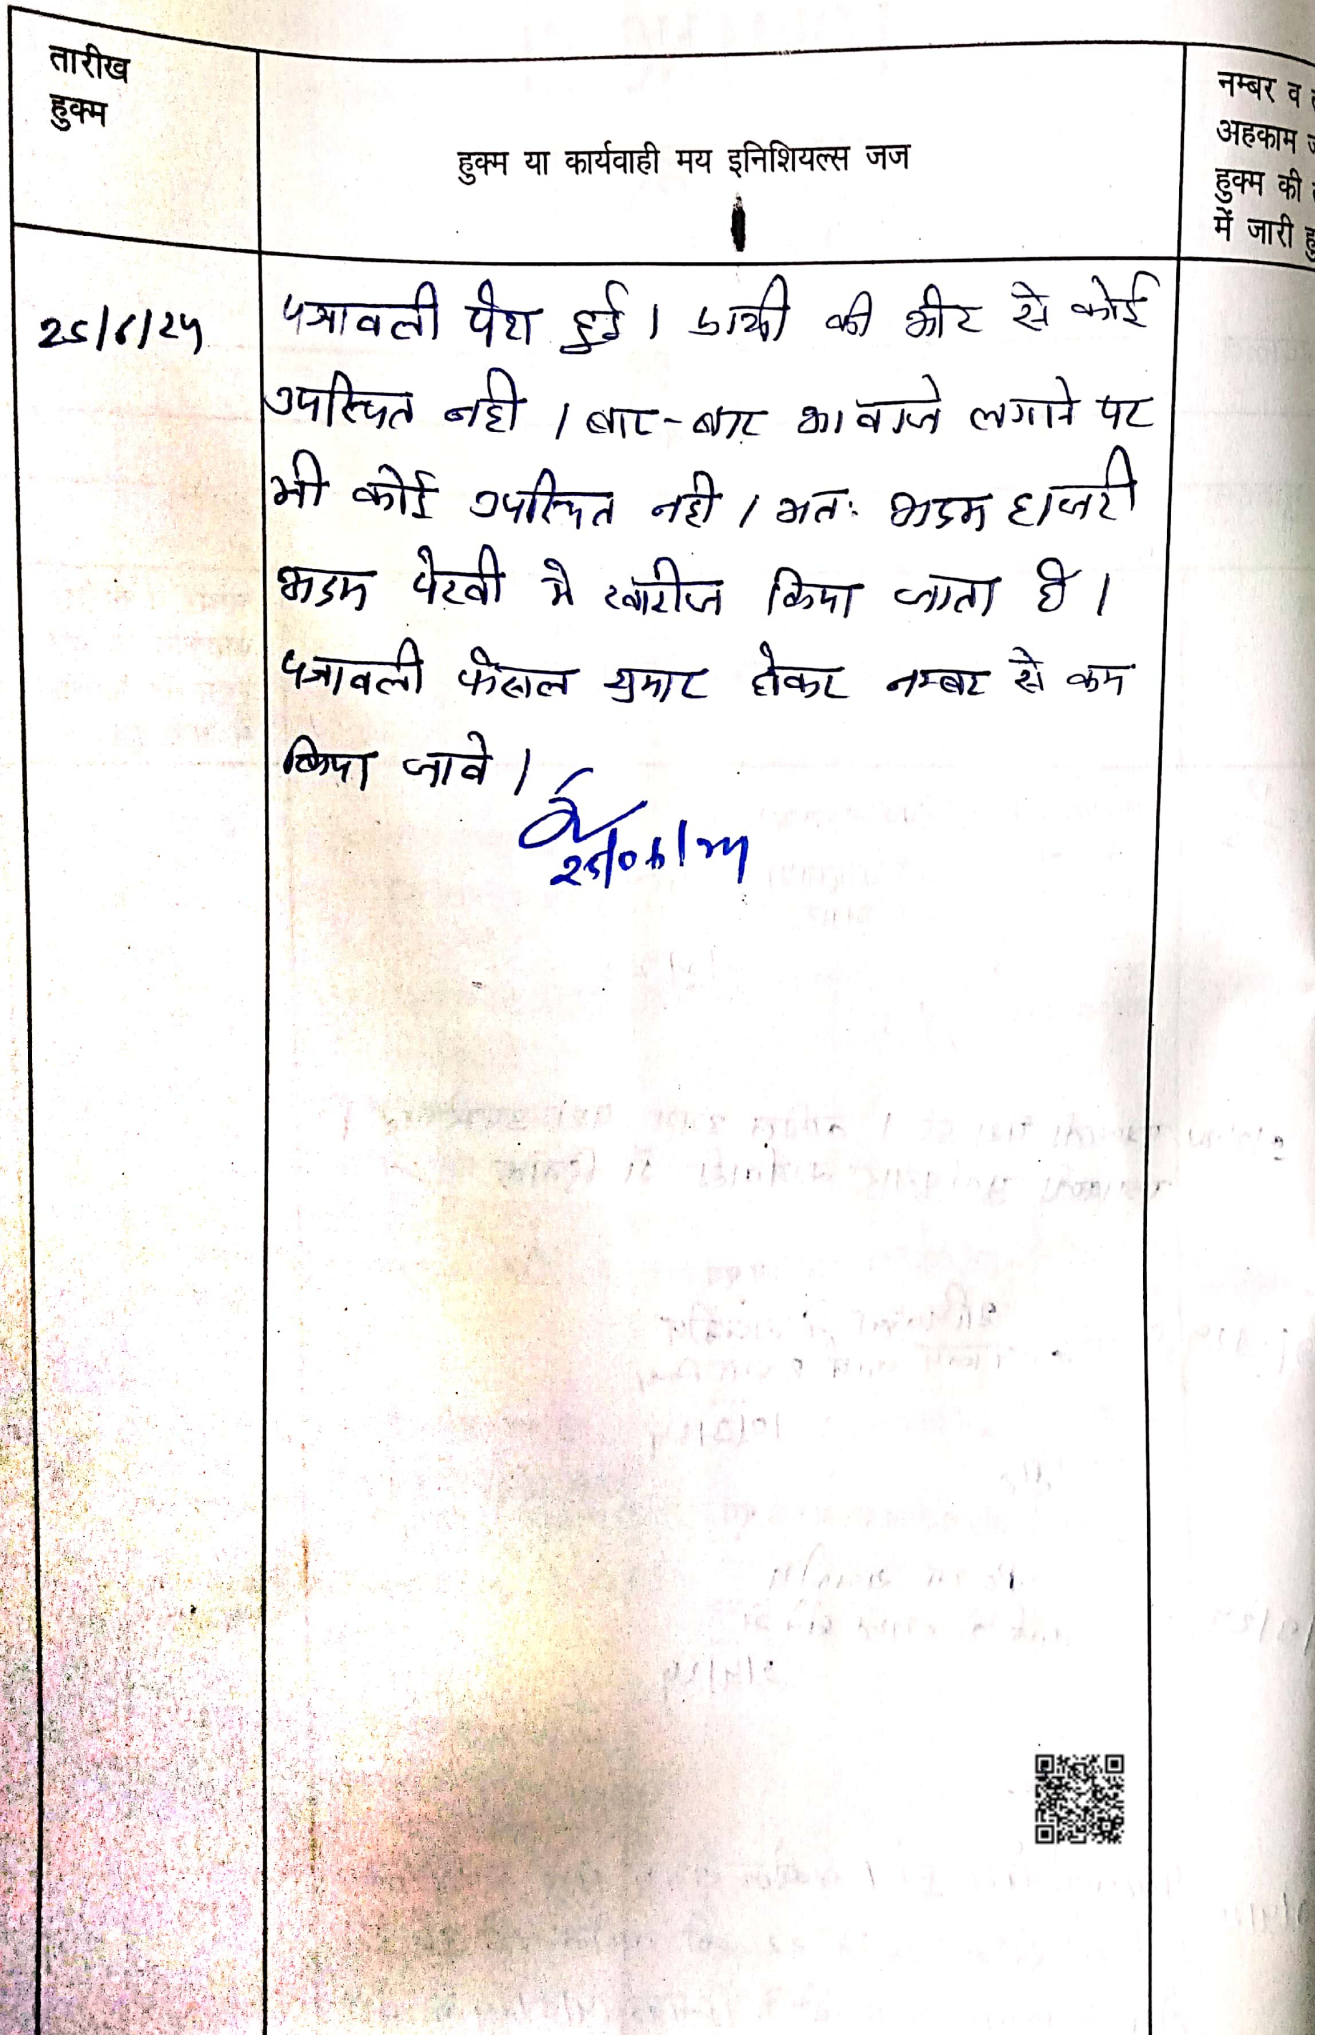 तारीख
हुक्म
हुक्म या कार्यवाही मय इनिशियल्स जज
नम्बर व
अहकाम
हुक्म की
में जारी
25/6/24
पत्रावली पेश हुई। प्रार्थी की ओर से कोई
उपस्थित नही। बार-बार आवाजे लगाने पर
भी कोई उपस्थित नही। अतः अदम हाजरी
अदम पैरवी मे खारीज किया जाता है।
पत्रावली फैसल शुमार होकर नम्बर से कम
किया जावे।
25/06/24